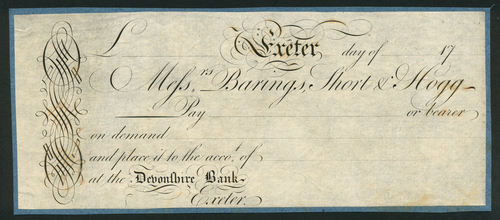 £ Exeter day of 17
Mess.rs Barings, Short & Hogg
Pay or bearer
on demand
and place it to the acco.t of
at the Devonshire Bank
Exeter.